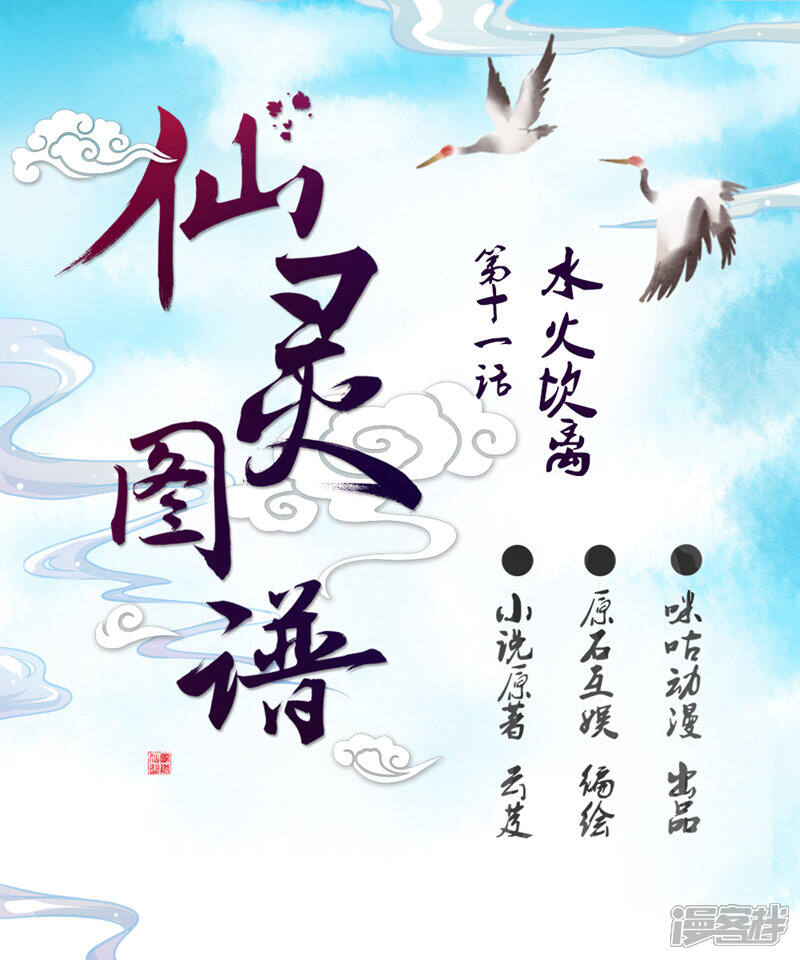 仙灵图谱
水火坎离
第十一话
咪咕动漫 出品
原石互娱 编绘
小说原著 云芨
漫客栈